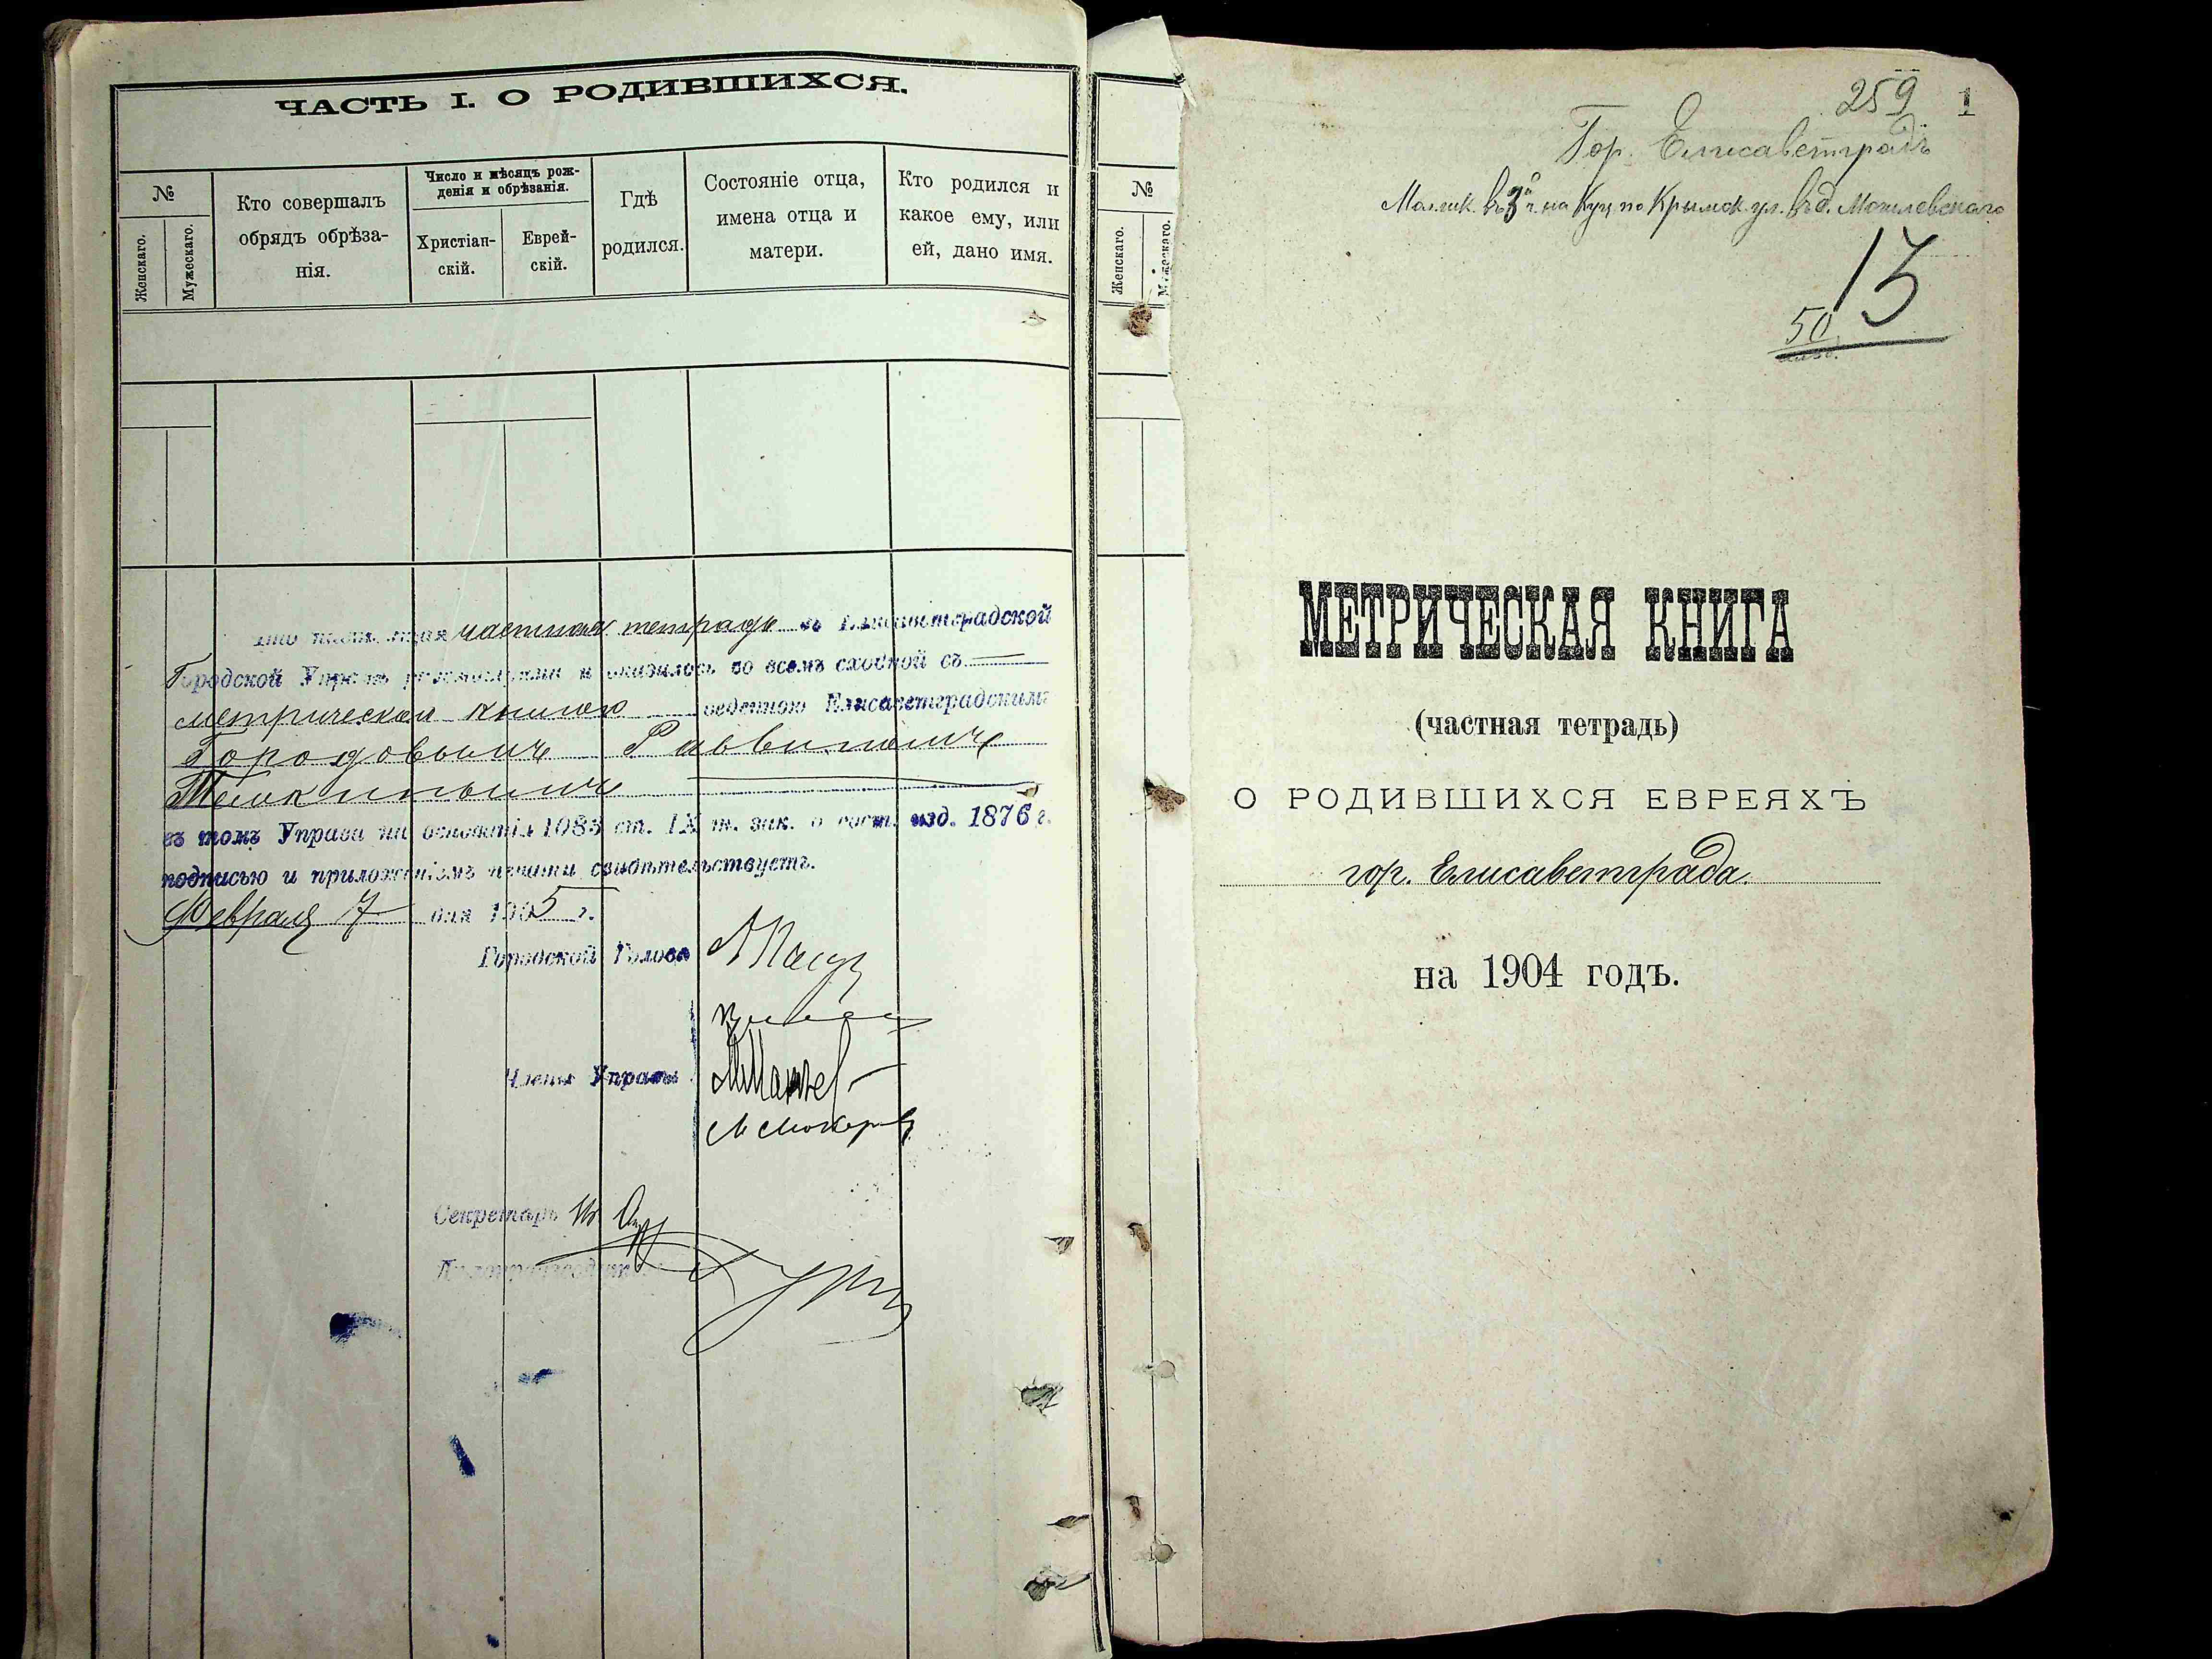 ЧАСТЬ I. О РОДИВШИХСЯ.
№
Женскаго.
Мужескаго.
Кто совершалъ
обрядъ обрѣза-
нія.
Число и мѣсяцъ рож-
денія и обрѣзанія.
Христіан-
скій.
Еврей-
скій.
Гдѣ
родился.
Состояніе отца,
имена отца и
матери.
Кто родился и
какое ему, или
ей, дано имя.
что частная тетрадь въ Елисаветградской
Городской Управѣ и оказалось во всемъ сходной съ
метрической книгою веденною Елисаветградскимъ
Городовымъ Раввиномъ
Темкинымъ
въ томъ Управа на основаніи 1083 ст. IX т. зак. о сост. изд. 1876 г.
подписью и приложеніемъ печати свидѣтельствуетъ.
Февраля 7 дня 1905 г.
Городской Голова
Члены Управы
Секретарь
Дѣлопроизводитель
№
Женскаго.
Мужескаго.
259 1
Гор. Елисаветградъ
въ 3й ч. на Куц по Крымск. ул. въ д. Могилевскаго
13
50
МЕТРИЧЕСКАЯ КНИГА
(частная тетрадь)
О РОДИВШИХСЯ ЕВРЕЯХЪ
гор. Елисаветграда.
на 1904 годъ.